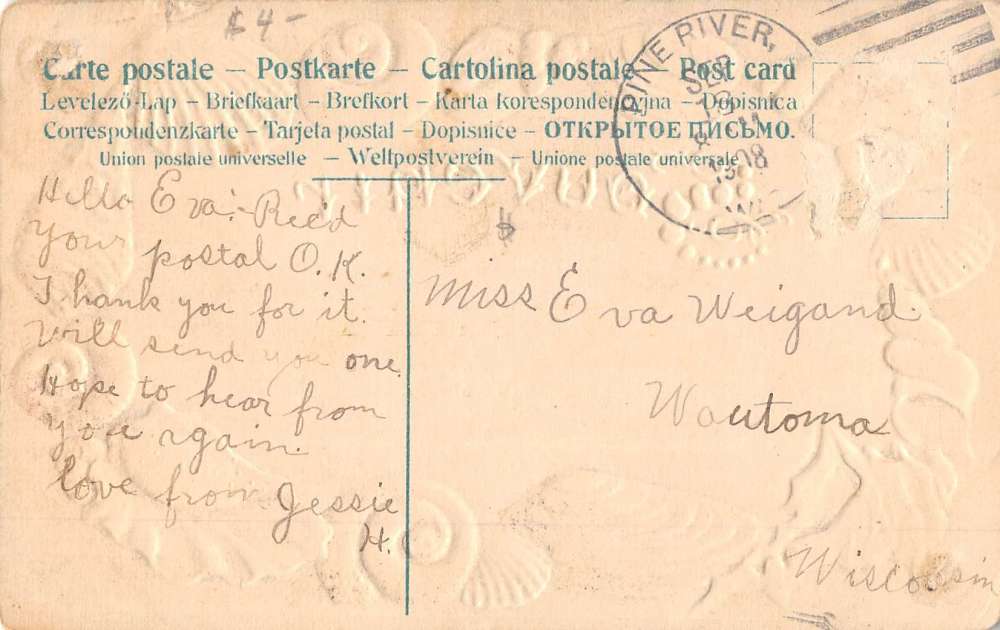 $4-
Carte postale – Postkarte – Cartolina postale – Post card
Levelező-Lap – Briefkaart – Brefkort – Karta korespondencyjna – Dopisnica
Correspondenzkarte – Tarjeta postal – Dopisnice – ОТКРЫТОЕ ПИСЬМО.
Union postale universelle – Weltpostverein – Unione postale universale
PINE RIVER,
SEP
1908
WIS
Hello Eva:-Rec'd
your postal O.K.
Thank you for it.
Will send you one.
Hope to hear from
you again.
Love from Jessie
H.
Miss Eva Weigand.
Wautoma
Wisconsin